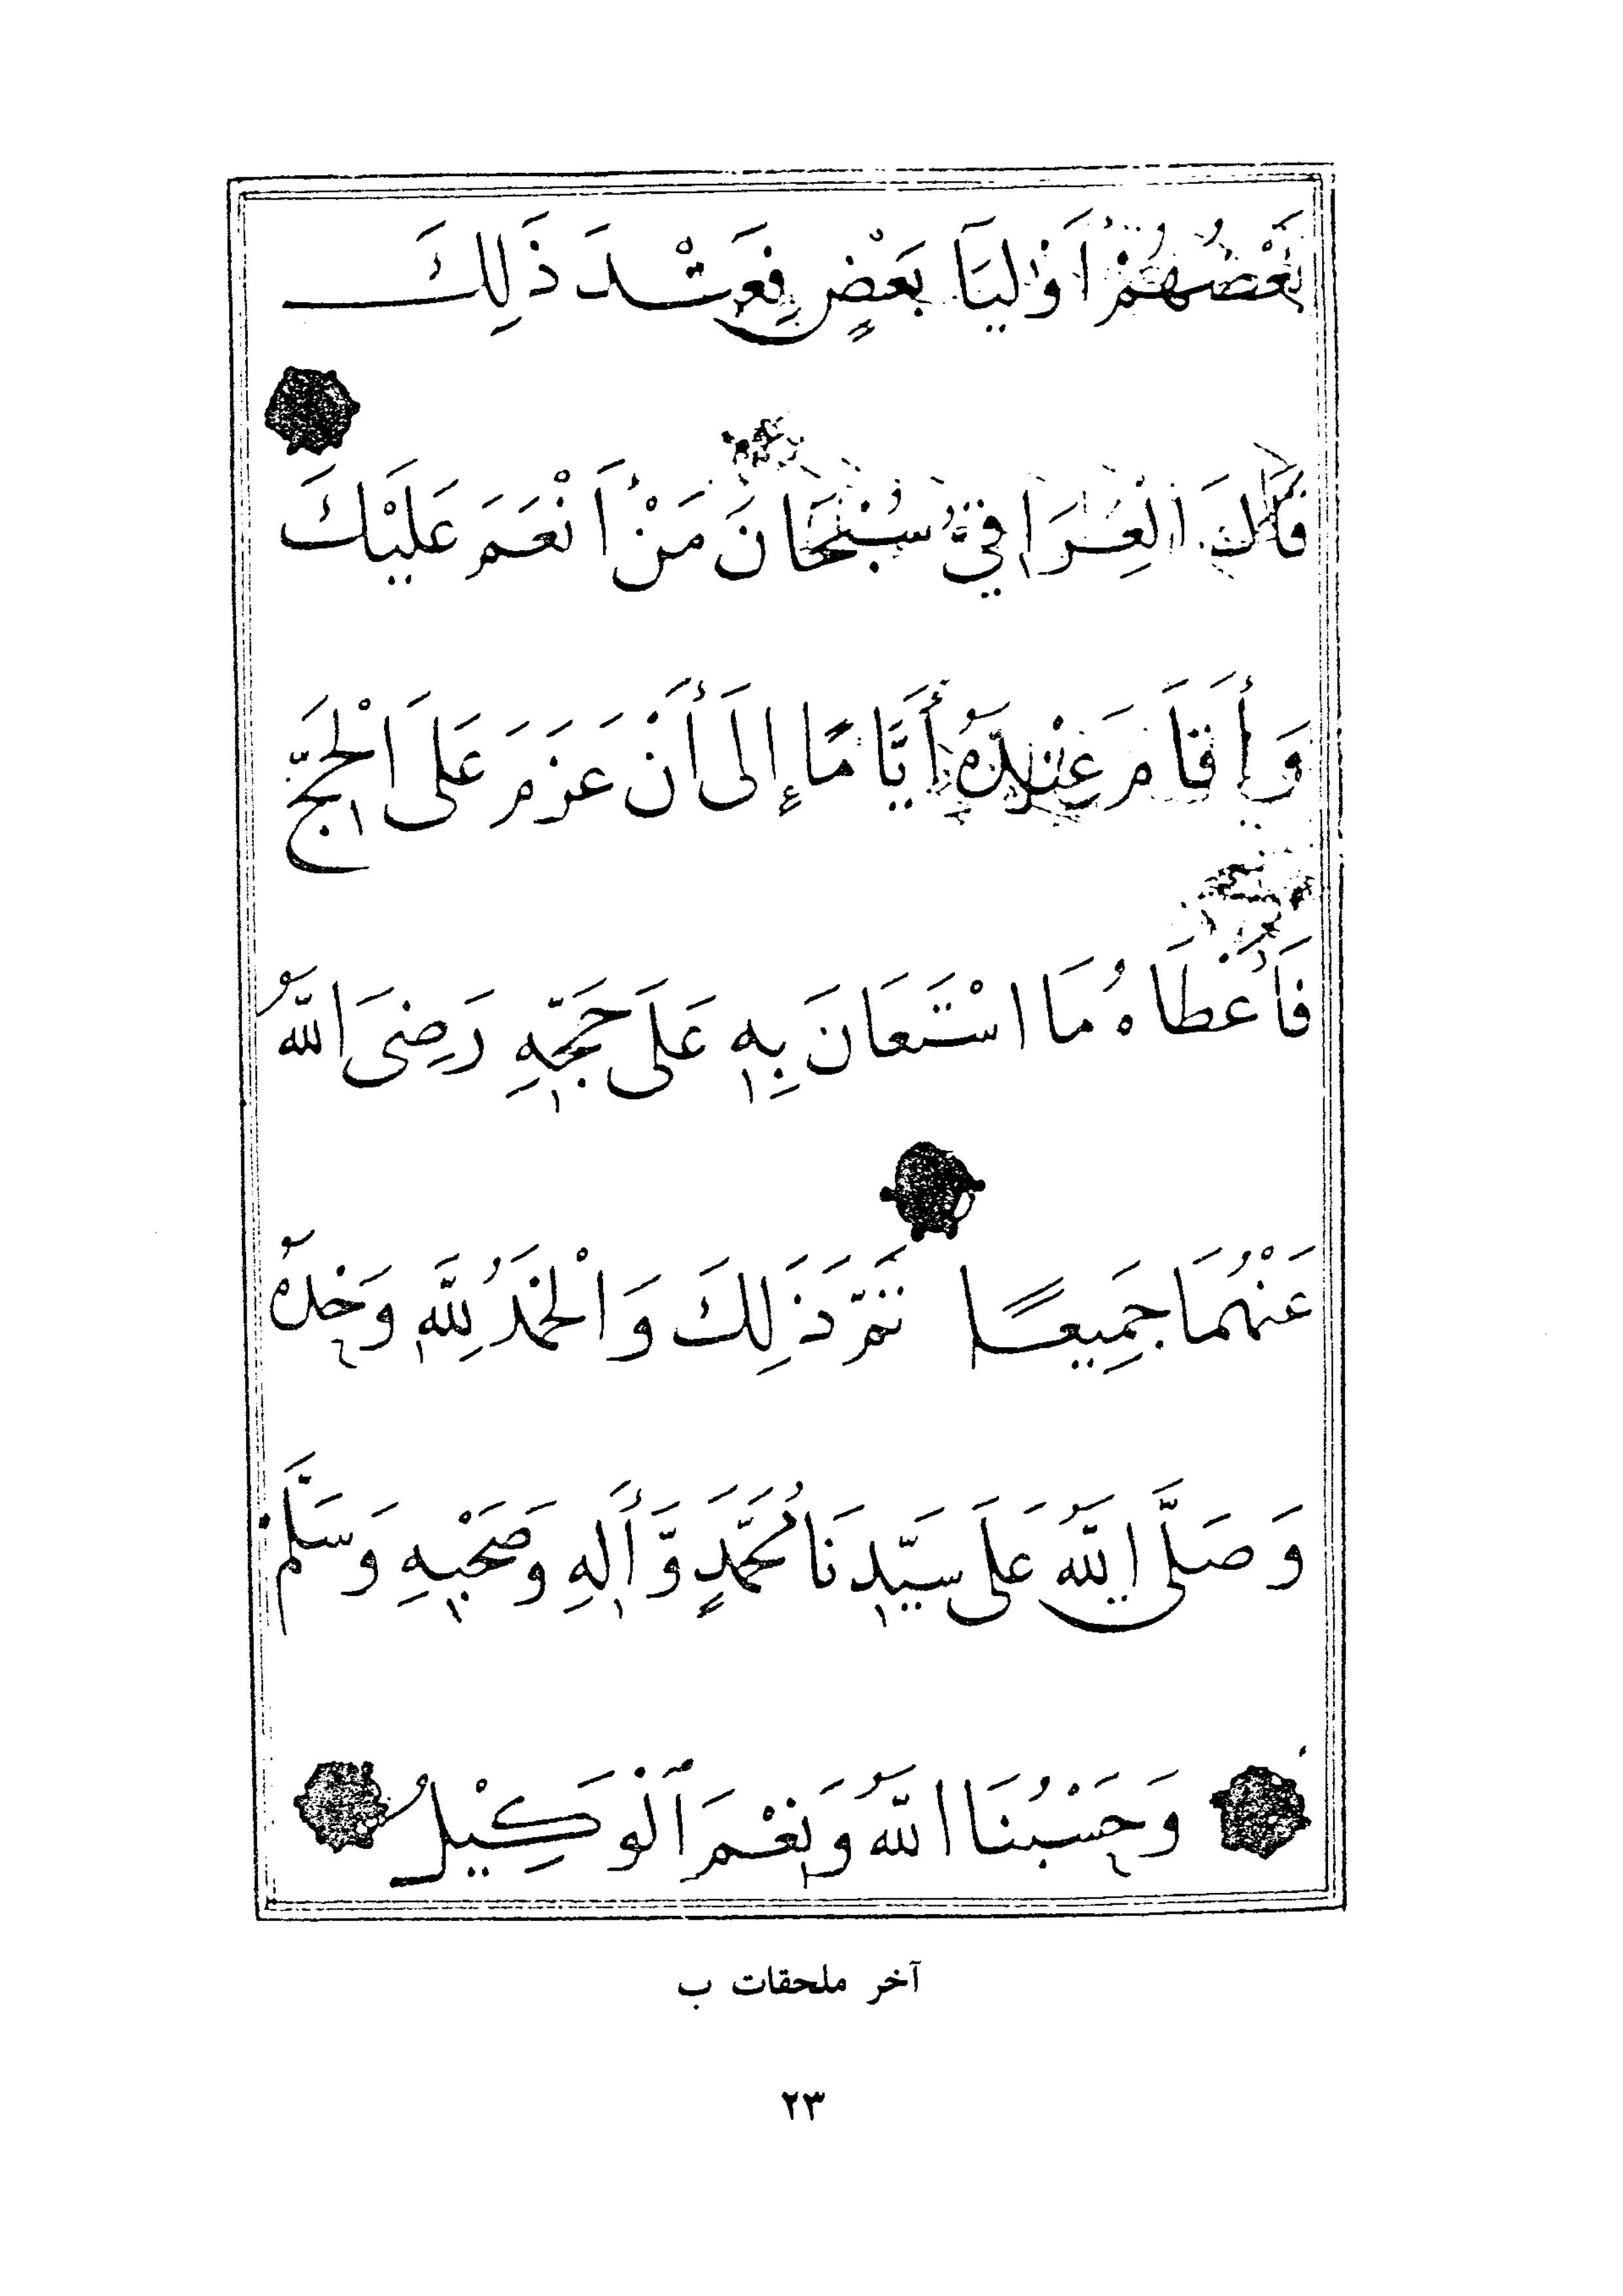 بَعْضُهُمْ أَوْلِيَآ بَعْضٍ فَعِنْدَ ذَلِكَ
قَالَ الْعِرَاقِيُّ سُبْحَانَ مَنْ أَنْعَمَ عَلَيْكَ
وَأَقَامَ عِنْدَهُ أَيَّامًا إِلَى أَنْ عَزَمَ عَلَى الْحَجِّ
فَأَعْطَاهُ مَا اسْتَعَانَ بِهِ عَلَى حَجِّهِ رَضِىَ اللّٰهُ
عَنْهُمَا جَمِيعًا تَمَّ ذَلِكَ وَالْحَمْدُ لِلَّهِ وَحْدَهُ
وَصَلَّى اللّٰهُ عَلَى سَيِّدِنَا مُحَمَّدٍ وَّأَلِهِ وَصَحْبِهِ وَسَلَّمَ
وَحَسْبُنَا اللّٰهُ وَنِعْمَ ٱلْوَكِيْلُ
آخر ملحقات ب
٢٣